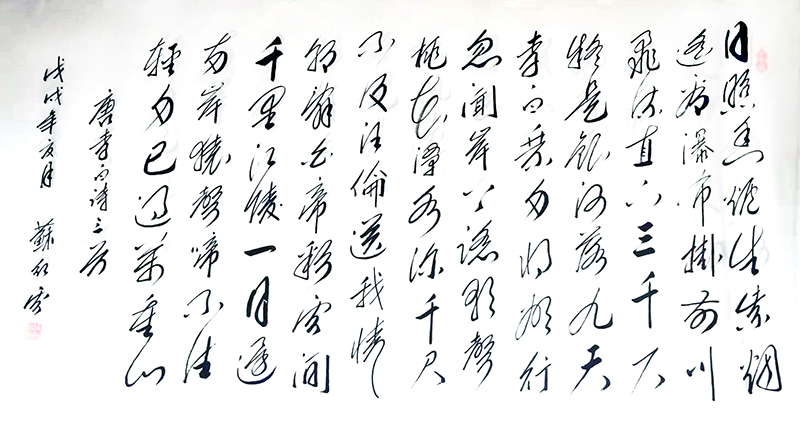 日照香炉生紫烟
遥看瀑布掛前川
飛流直下三千尺
疑是銀河落九天
李白乘舟将欲行
忽聞岸上踏歌聲
桃花潭水深千尺
不及汪倫送我情
朝辭白帝彩雲间
千里江陵一日還
两岸猿聲啼不住
輕舟已過萬重山
唐李白诗三首
戊戌年亥月 蘇红